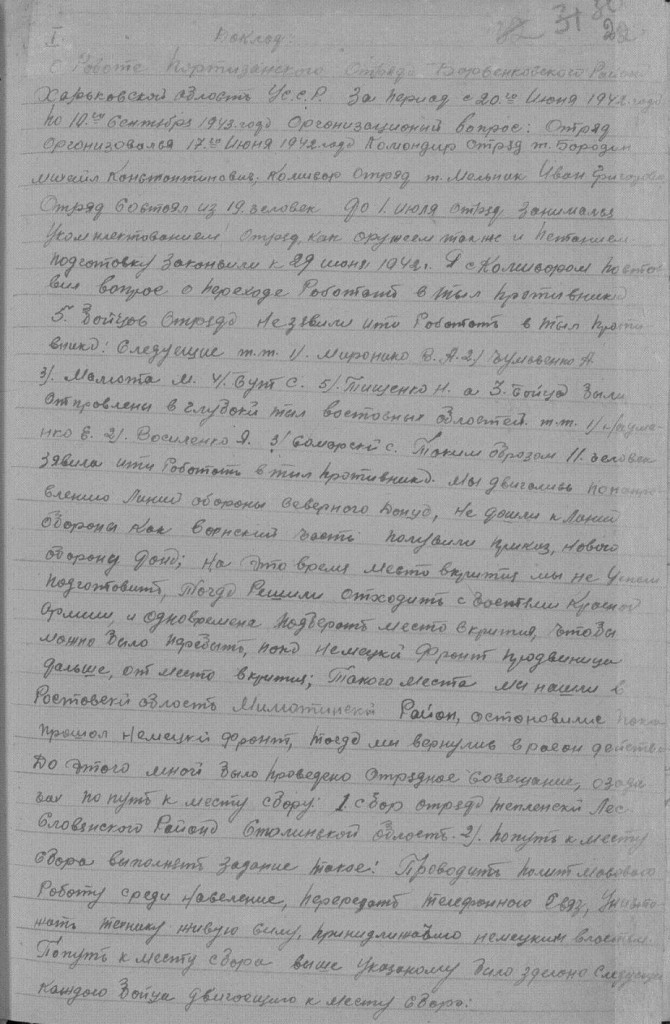 I
Доклад.
31
О Работе Портизанского Отряда Барвенковского Район
Харьковской область Ус.с.Р. За период с 20.го Июня 1942. года
по 10.го Сентября 1943. годо Организационый вопрос: Отряд
Организовался 17.го Июня 1942 годо Комондир отряд т. Бородин
михаил Константинович, Комисор отряд т. Мельник Иван Григорович
Отряд состоял из 19. человек До 1. июля отряд занимался
Укомплектованием отряд, как оружием также и Петанием
подготовку законьчили к 29 июня 1942 г. Я с Комисором постов
вил вопрос о переходе Работать в тыл противнико
5. Бойцов Отрядо не зявили ити Роботать в тыл проти
внико: Следующие т.т. 1). Миронико В. А. 2) А
3). Мамота М. 4). С. 5). Тищенко Н. а 3. бойцо были
отправлены в глубокй тил восточных областей. т.т. 1)
нко Е. 2). Восиленко Я. 3) с. Таким образом 11. человек
зявила ити Роботать в тыл противнико. Мы двигались по напро
влению Линий обороны Северного Донцо, не дошли к Линий
обороны как воинский часть получили приказ, нового
оборону Доно; на это время место вкрития мы не успели
подготовить, Тогдо Решили отходить с Частями Красной
армии, и одновремена подберать место вкрития, чтобы
можно было перебыть, поко немецкй фронт продвеница
дальше, от место вкрития; Такого места мы нашли в
Ростовскй область Район, остоновились поко
прошол немецкй фронт, тогдо мы вернулись в раеон действо
До этого мной было проведено Отрядное Совещание, о зада
чах по путь к месту сбору: 1 сбор отрядо тепленскй Лес.
Словянского Райано Столинской область. 2). по путь к месту
сбора выполнять задание такое: Преводить полит мовового
Роботу среди Население, перерезать телефонного Связ, Уничто
жать технику живую силу, принидлижавшо немецким властям.
По путь к месту сбора выше указоному было зделоно Следующе
каждого Бойца двигоещиго к месту сборо: